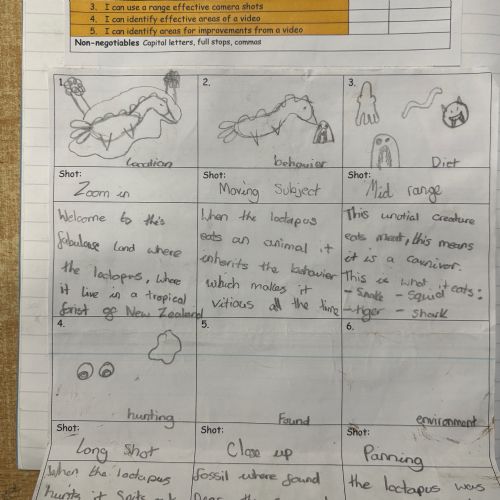 3. I can use a range effective camera shots
4. I can identify effective areas of a video
5. I can identify areas for improvements from a video
Non-negotiables Capital letters, full stops, commas
1.
Location
Shot:
Zoom in
Welcome to this
fabulase land where
the loctapus, where
it live in a tropical
forist of New Zealand
2.
behavior
Shot:
Moving Subject
When the loctapus
eats an animal it
inherits the bahavior
which makes it
vitious all the time
3.
Diet
Shot:
Mid range
This unatial creature
eats meat, this means
it is a carniver.
This is what it eats:
- Snake - Squid
- tiger - shark
4.
hunting
Shot:
Long Shot
When the loctapus
hunts it Spits
5.
Found
Shot:
Close up
fossil where found
Near the
6.
environment
Shot:
Panning
the loctapus was